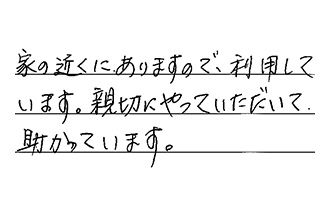 家の近くにありますので、利用して
います。親切にやっていただいて、
助かっています。